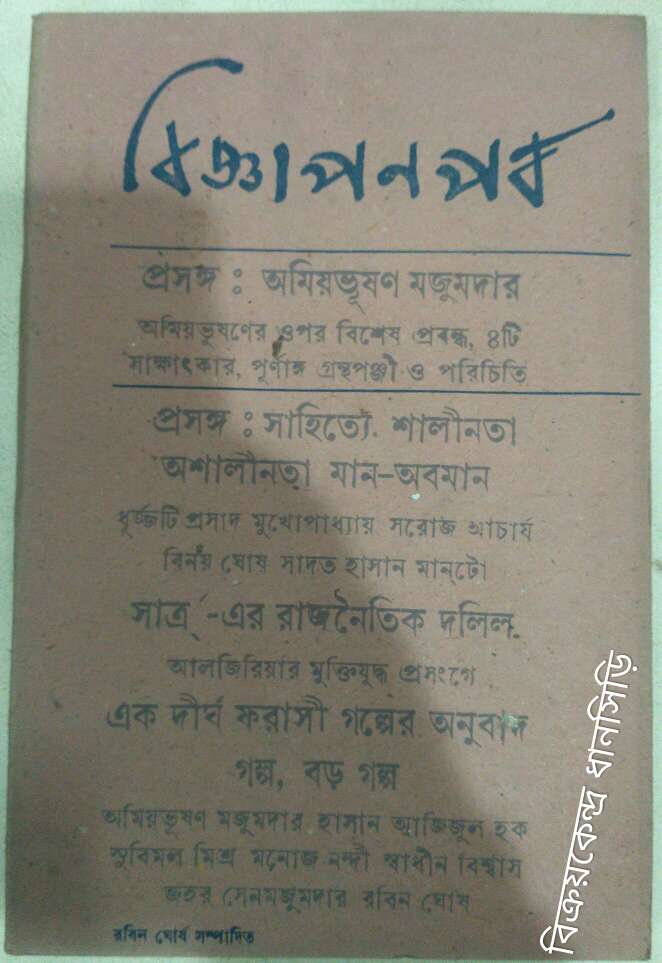 বিজ্ঞাপনপর্ব
প্রসঙ্গ : অমিয়ভূষণ মজুমদার
অমিয়ভূষণের ওপর বিশেষ প্রবন্ধ, ৪টি
সাক্ষাৎকার, পূর্ণাঙ্গ গ্রন্থপঞ্জী ও পরিচিতি
প্রসঙ্গ : সাহিত্যে শালীনতা
অশালীনতা মান-অবমান
ধূর্জ্জটি প্রসাদ মুখোপাধ্যায় সরোজ আচার্য
বিনয় ঘোষ সাদত হাসান মানটো
সার্ত্র-এর রাজনৈতিক দলিল
আলজিরিয়ার মুক্তিযুদ্ধ প্রসংগে
এক দীর্ঘ ফরাসী গল্পের অনুবাদ
গল্প, বড় গল্প
অমিয়ভূষণ মজুমদার হাসান আজিজুল হক
সুবিমল মিশ্র মনোজ নন্দী স্বাধীন বিশ্বাস
জহর সেনমজুমদার রবিন ঘোষ
রবিন ঘোষ সম্পাদিত
বিক্রয়কেন্দ্র ধানসিড়ি